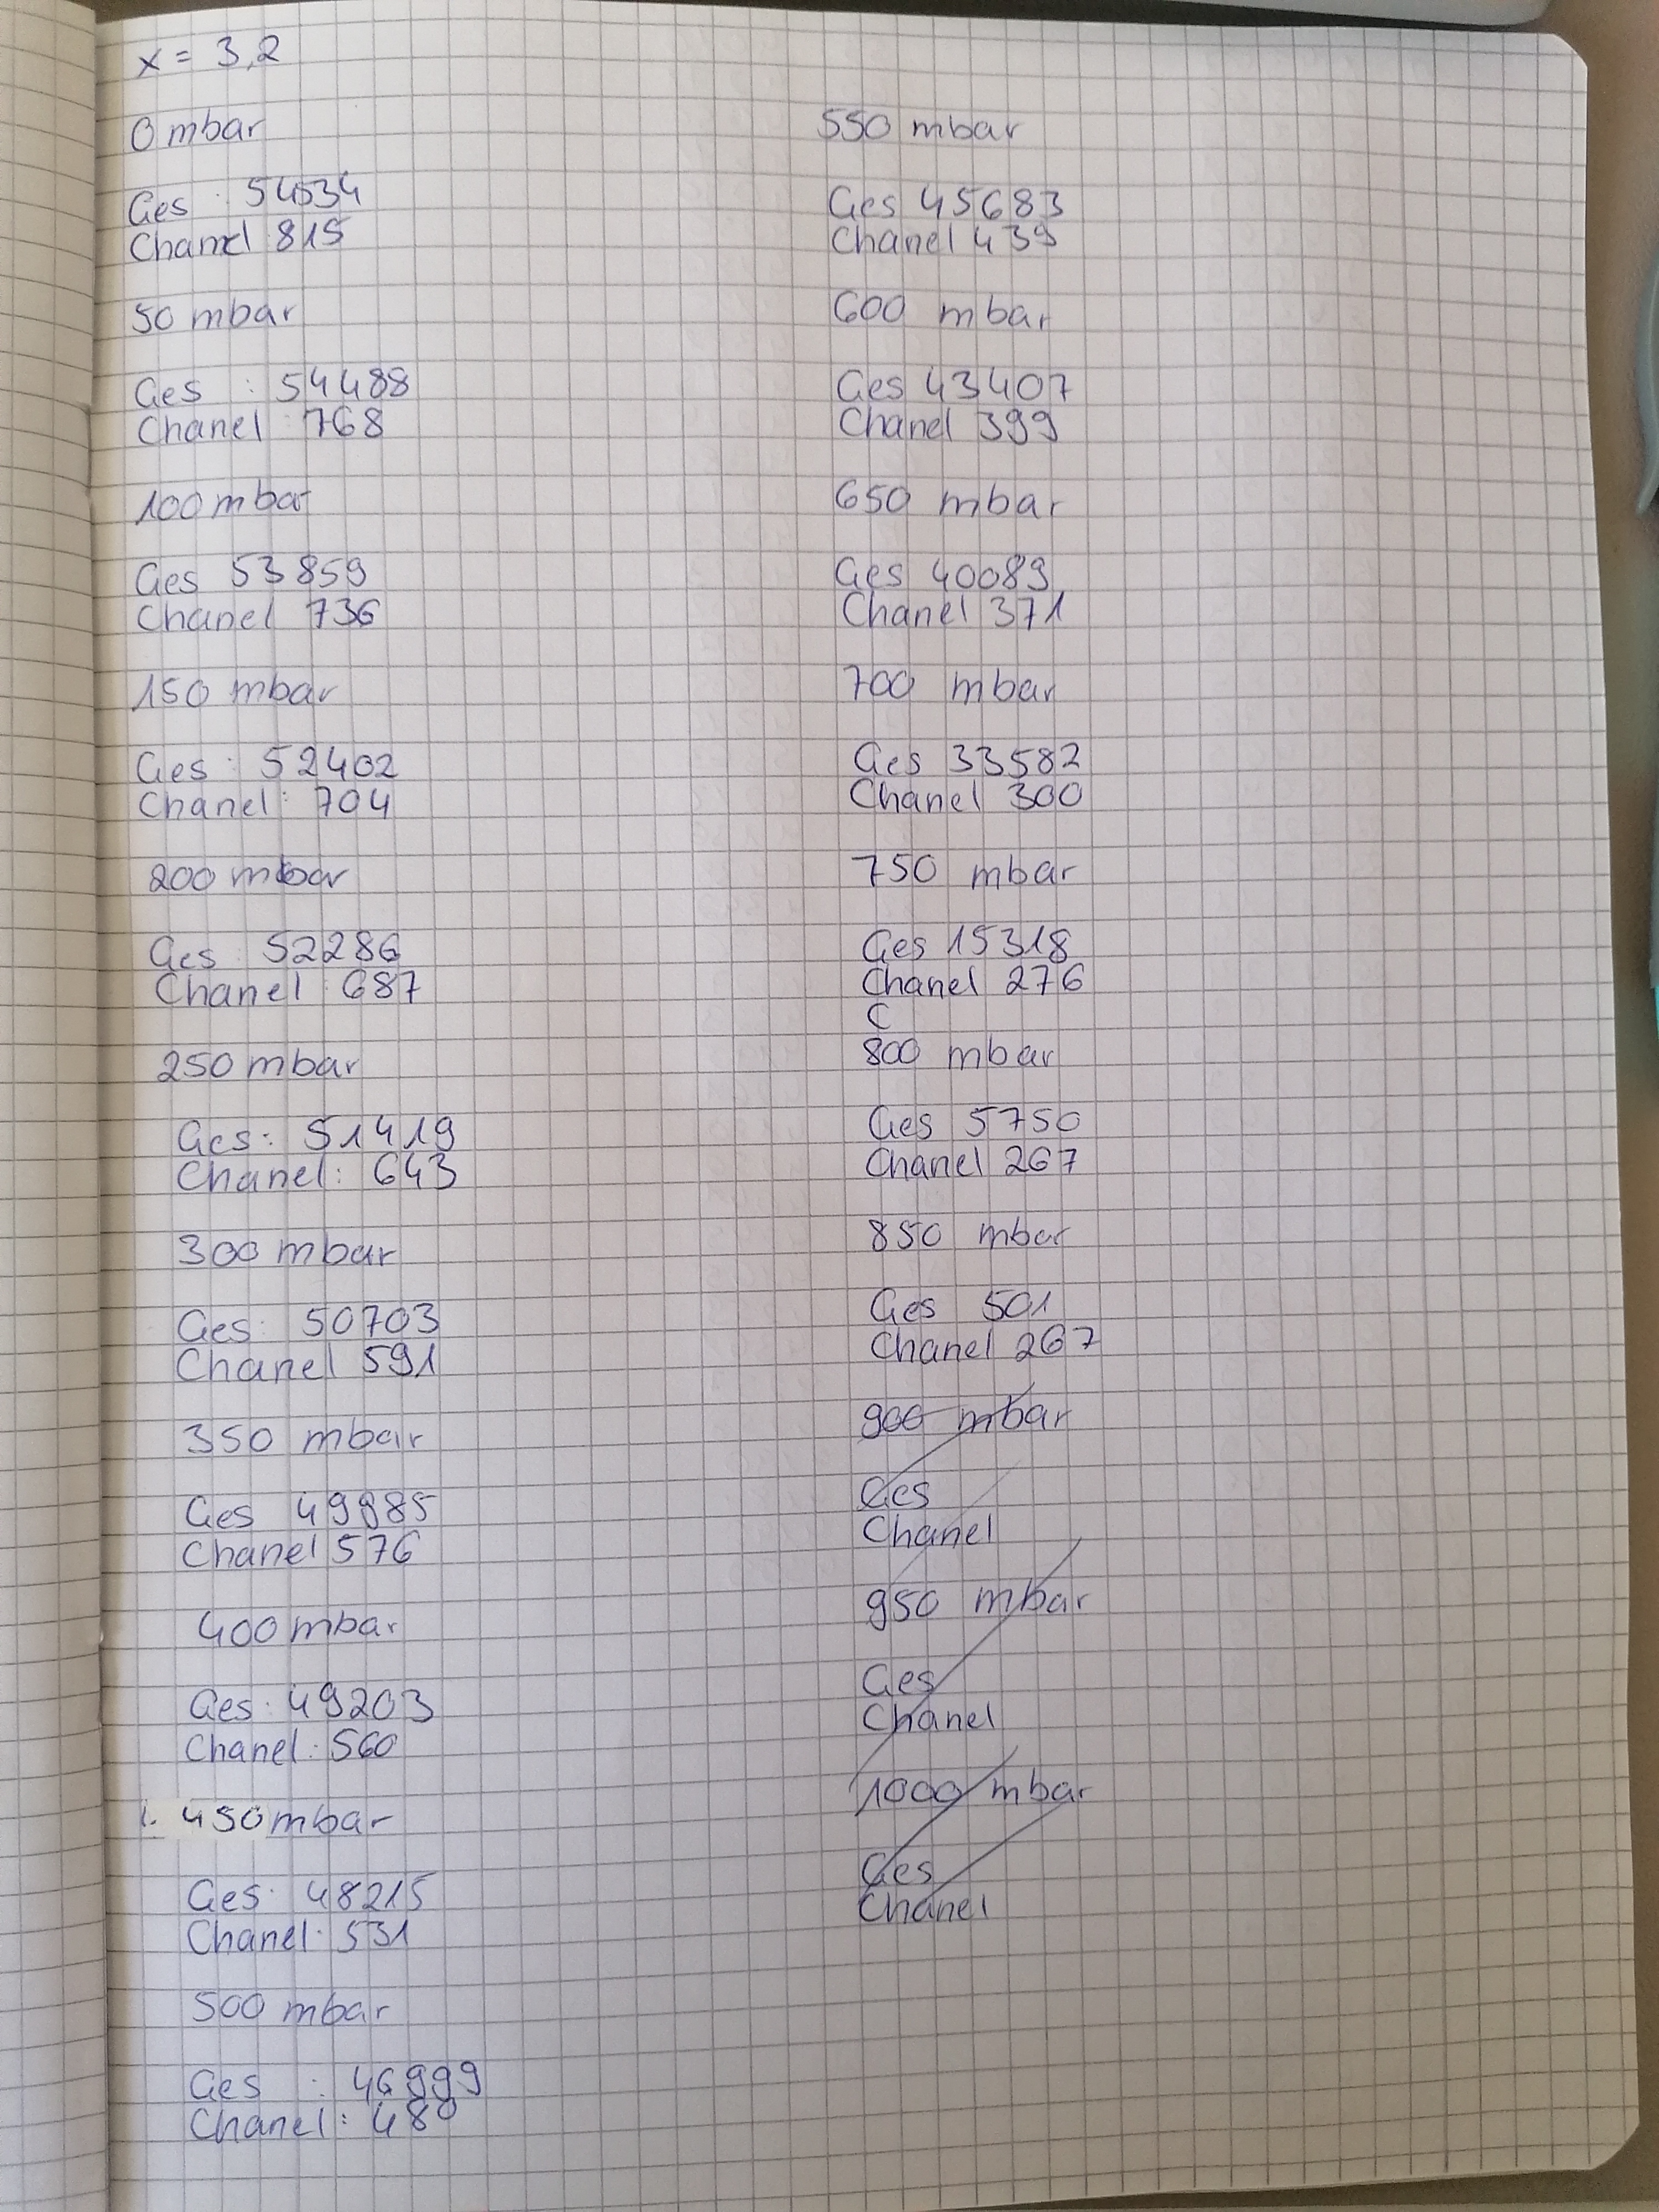 x = 3,2
0 mbar
Ges : 54534
Chanel 815
50 mbar
Ges : 54488
Chanel 768
100 mbar
Ges 53859
Chanel 736
150 mbar
Ges : 52402
Chanel : 704
200 mbar
Ges : 52286
Chanel : 687
250 mbar
Ges : 51419
Chanel : 643
300 mbar
Ges : 50703
Chanel 591
350 mbar
Ges 49985
Chanel 576
400 mbar
Ges : 49203
Chanel : 560
450 mbar
Ges : 48215
Chanel : 531
500 mbar
Ges : 46999
Chanel : 480
550 mbar
Ges 45683
Chanel 439
600 mbar
Ges 43407
Chanel 399
650 mbar
Ges 40089
Chanel 371
700 mbar
Ges 33582
Chanel 300
750 mbar
Ges 15318
Chanel 276
C
800 mbar
Ges 5750
Chanel 267
850 mbar
Ges 501
Chanel 267
900 mbar
Ges
Chanel
950 mbar
Ges
Chanel
1000 mbar
Ges
Chanel